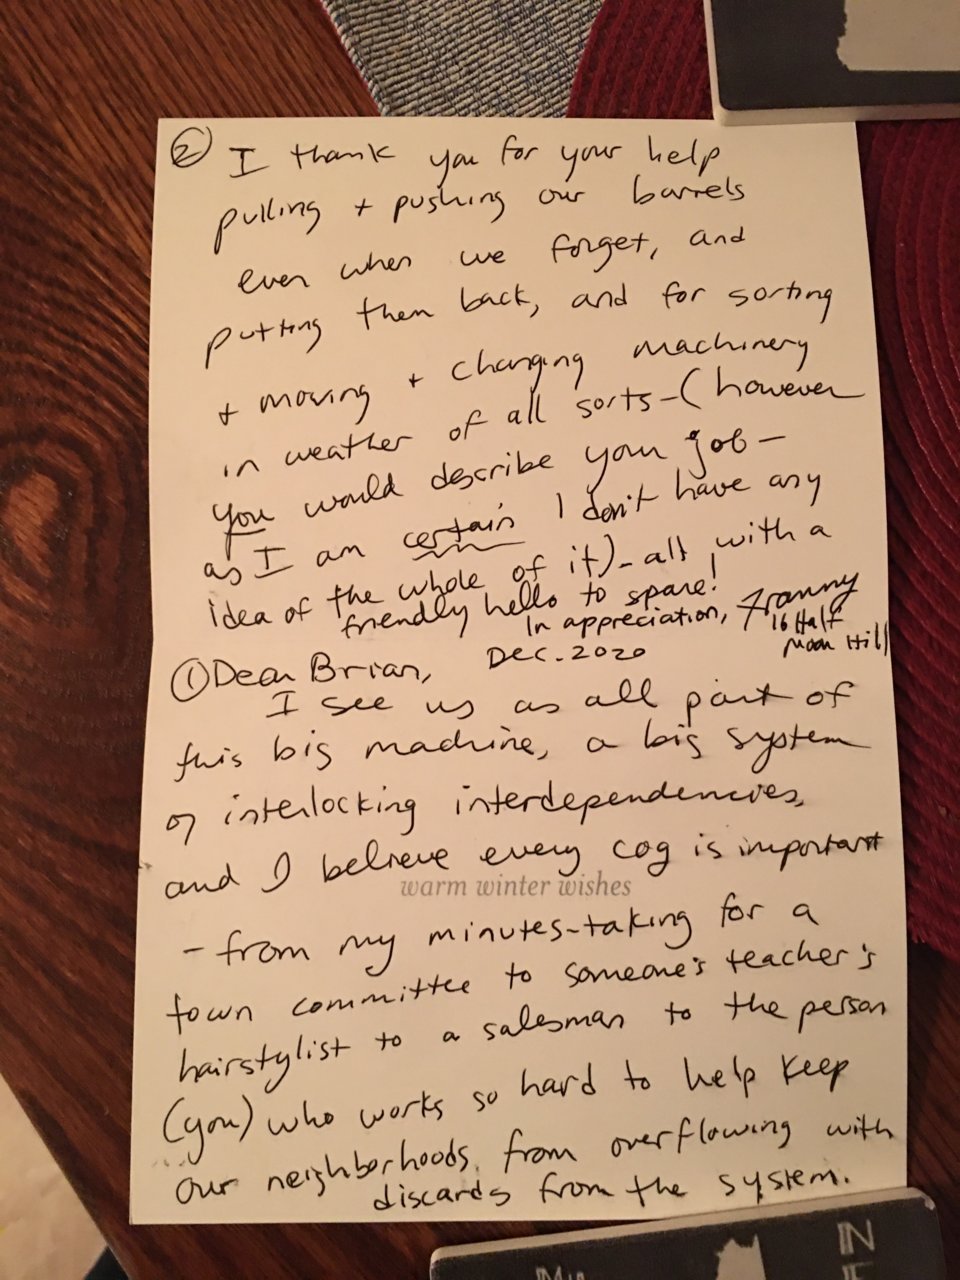 ② I thank you for your help
pulling + pushing our barrels
even when we forget, and
putting them back, and for sorting
+ moving + changing machinery
in weather of all sorts - (however
you would describe your job -
as I am certain I don't have any
idea of the whole of it) - all with a
friendly hello to spare!
In appreciation, Franny
16 Half
Moon Hill
① Dear Brian, Dec. 2020
I see us as all part of
this big machine, a big system
of interlocking interdependencies,
and I believe every cog is important
warm winter wishes
- from my minutes-taking for a
town committee to someone's teacher's
hairstylist to a salesman to the person
(you) who works so hard to help keep
our neighborhoods from overflowing with
discards from the system.
IN